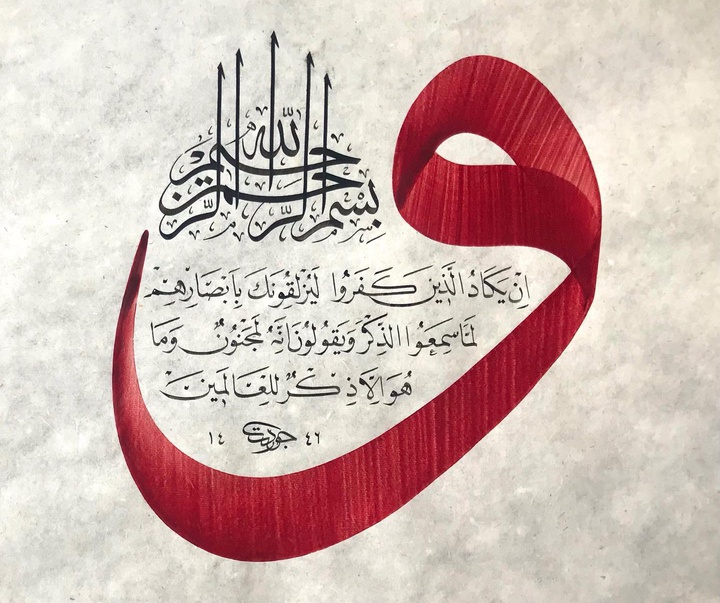 و
بسم الله الرحمن الرحيم
اِنْ يَكَادُ الَّذِينَ كَفَرُوا لَيُزْلِقُونَكَ بِاَبْصَارِهِمْ
لَمَّا سَمِعُوا الذِّكْرَ وَيَقُولُونَ اِنَّهُ لَمَجْنُونٌ وَمَا
هُوَ اِلَّا ذِكْرٌ لِلْعَالَمِينَ
١٤ جودت ٤٦